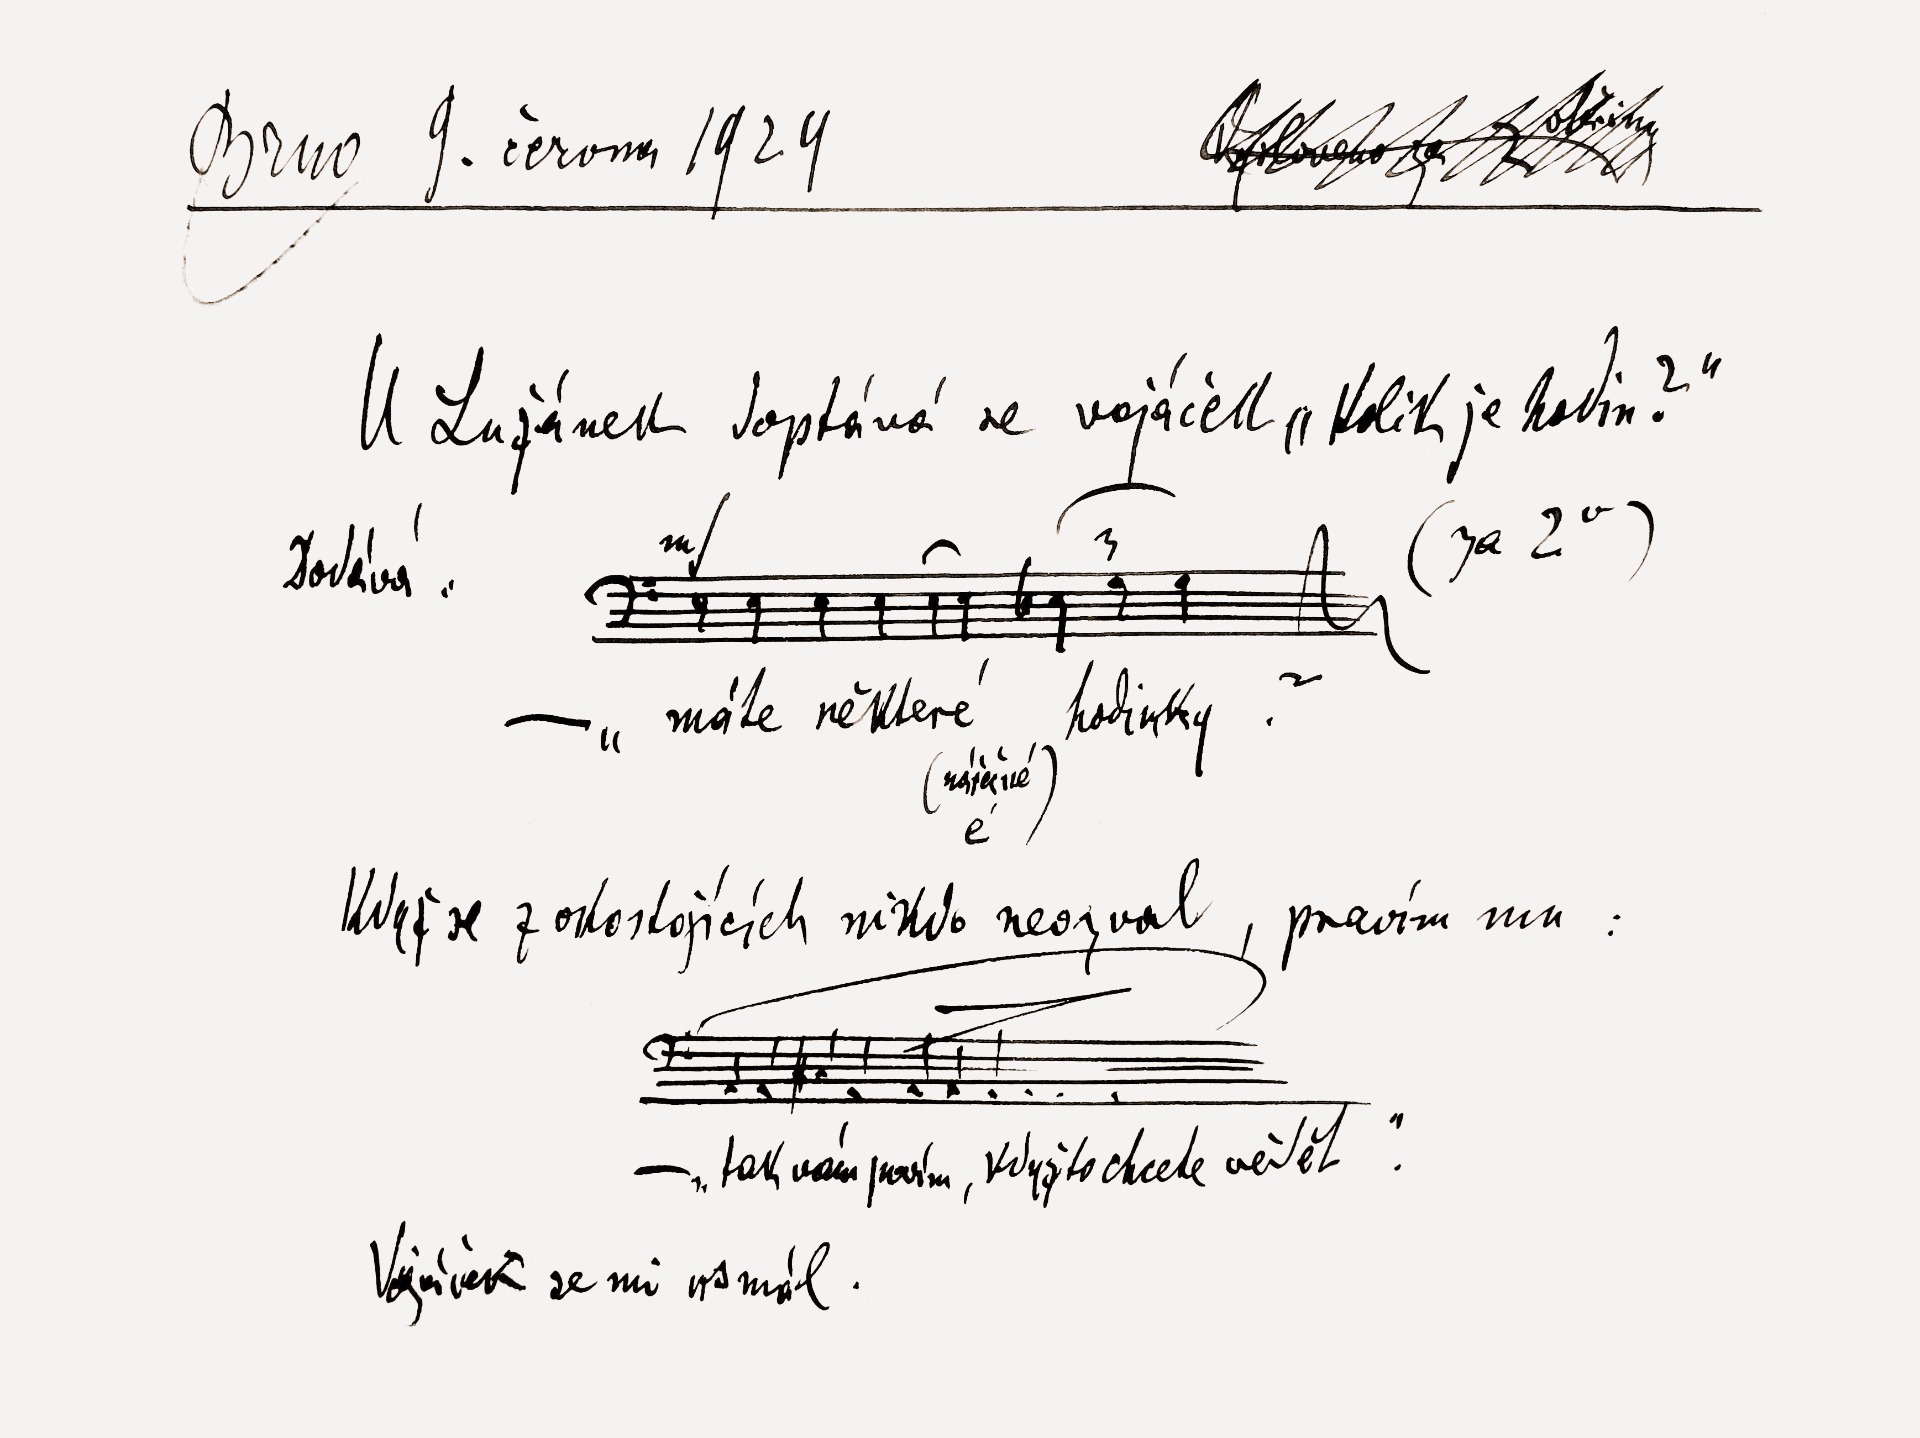 Brno 9. června 1924
U Lužánek doptává se vojáček „Kolik je hodin?“
Dodává:
(za 2")
3
—„máte některé hodinky?
(nářečné
é)
Když se z okostojících nikdo neozval, pravím mu:
—„tak vám povím, když to chcete vědět“.
Vojáček se mi vysmál.